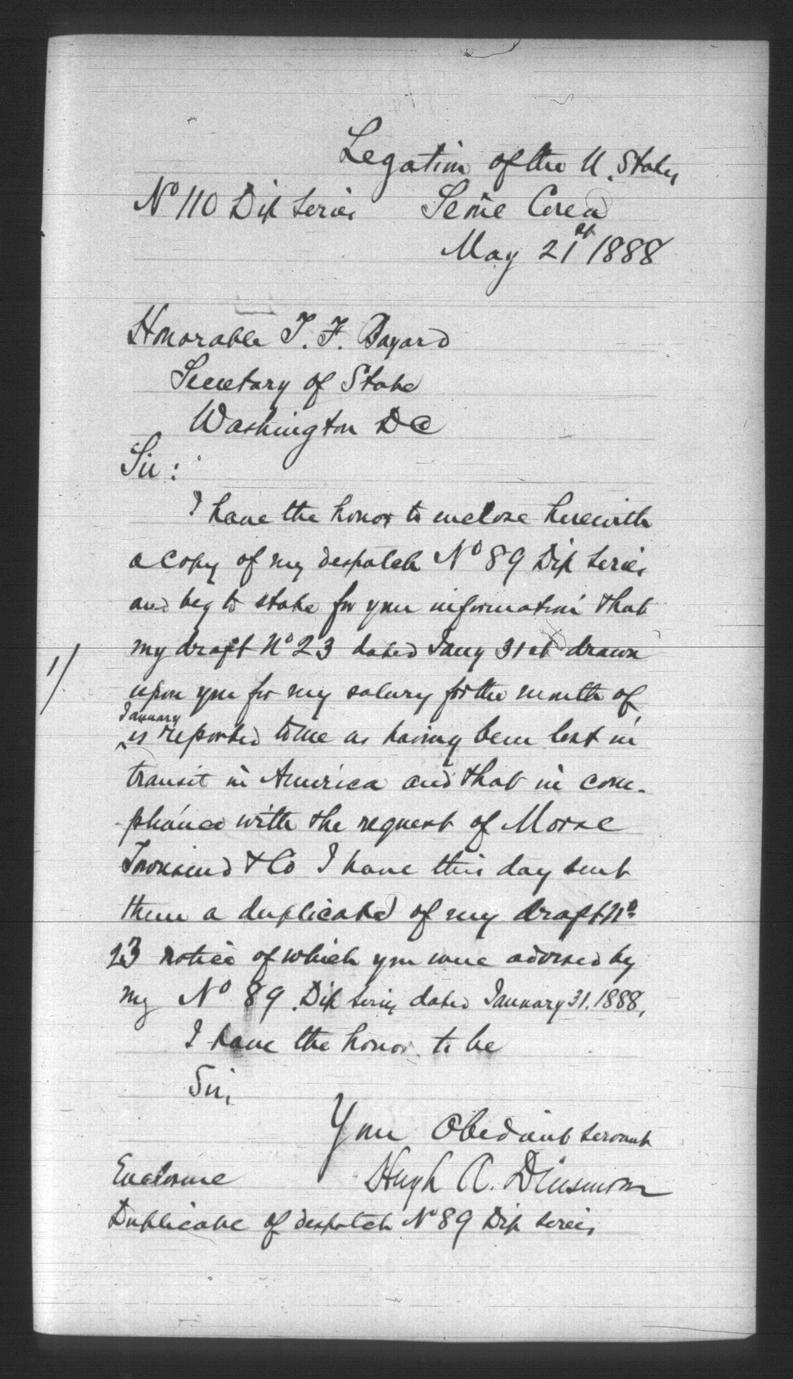 Legation of the U. States
No 110 Dip Series Seoul Corea
May 21st 1888
Honorable T. F. Bayard
Secretary of State
Washington DC
Sir:
I have the honor to enclose herewith
a copy of my despatch No 89 Dip Series
and beg to state for your information that
my draft No 23 dated Jany 31st drawn
1/
upon you for my salary for the month of
January
is reported to me as having been lost in
transit in America and that in com-
pliance with the request of Morse
Townsend & Co I have this day sent
them a duplicate of my draft No
23 notice of which you were advised by
my No 89 Dip Series dated January 31. 1888.
I have the honor to be
Sir,
Your Obedient servant
Hugh A. Dinsmore
Enclosure
Duplicate of despatch No 89 Dip Series